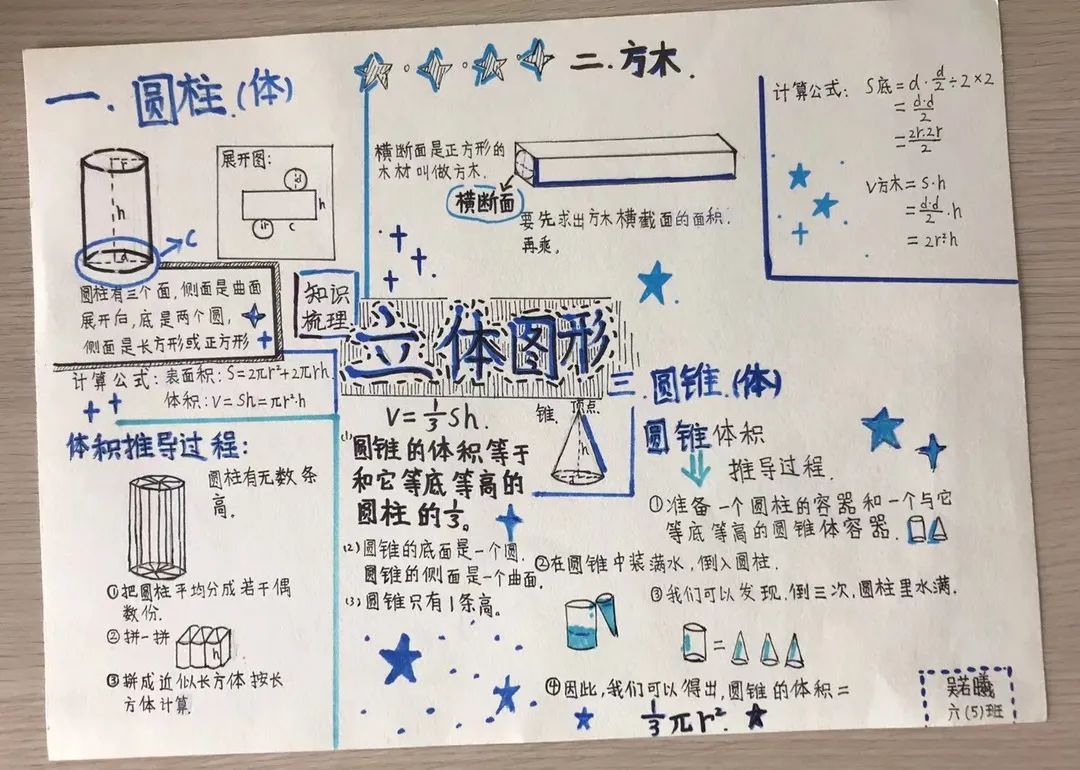 一.圆柱.(体)
r
h
d
C
展开图:
d
h
r
c
圆柱有三个面,侧面是曲面
展开后,底是两个圆,
侧面是长方形或正方形
计算公式:表面积:S=2πr²+2πrh.
体积:V=Sh=πr²·h
体积推导过程:
圆柱有无数条
高.
①把圆柱平均分成若干偶
数份.
②拼一拼
h
③拼成近似长方体按长
方体计算.
二.方木.
横断面是正方形的
木材叫做方木.
横断面
要先求出方木横截面的面积.
再乘。
计算公式: S底=d·d/2÷2×2
=d·d/2
=2r·2r/2
V方木=S·h
=d·d/2·h
=2r²h
知识
梳理
立体图形
V=1/3Sh.
(1)圆锥的体积等于
和它等底等高的
圆柱的1/3。
(2)圆锥的底面是一个圆.
圆锥的侧面是一个曲面.
(3)圆锥只有1条高。
锥. 顶点.
h
三.圆锥.(体)
圆锥体积
推导过程.
①准备一个圆柱的容器和一个与它
等底等高的圆锥体容器.
②在圆锥中装满水,倒入圆柱.
③我们可以发现,倒三次,圆柱里水满.
=
④因此,我们可以得出,圆锥的体积=
1/3πr².
吴若曦
六(5)班